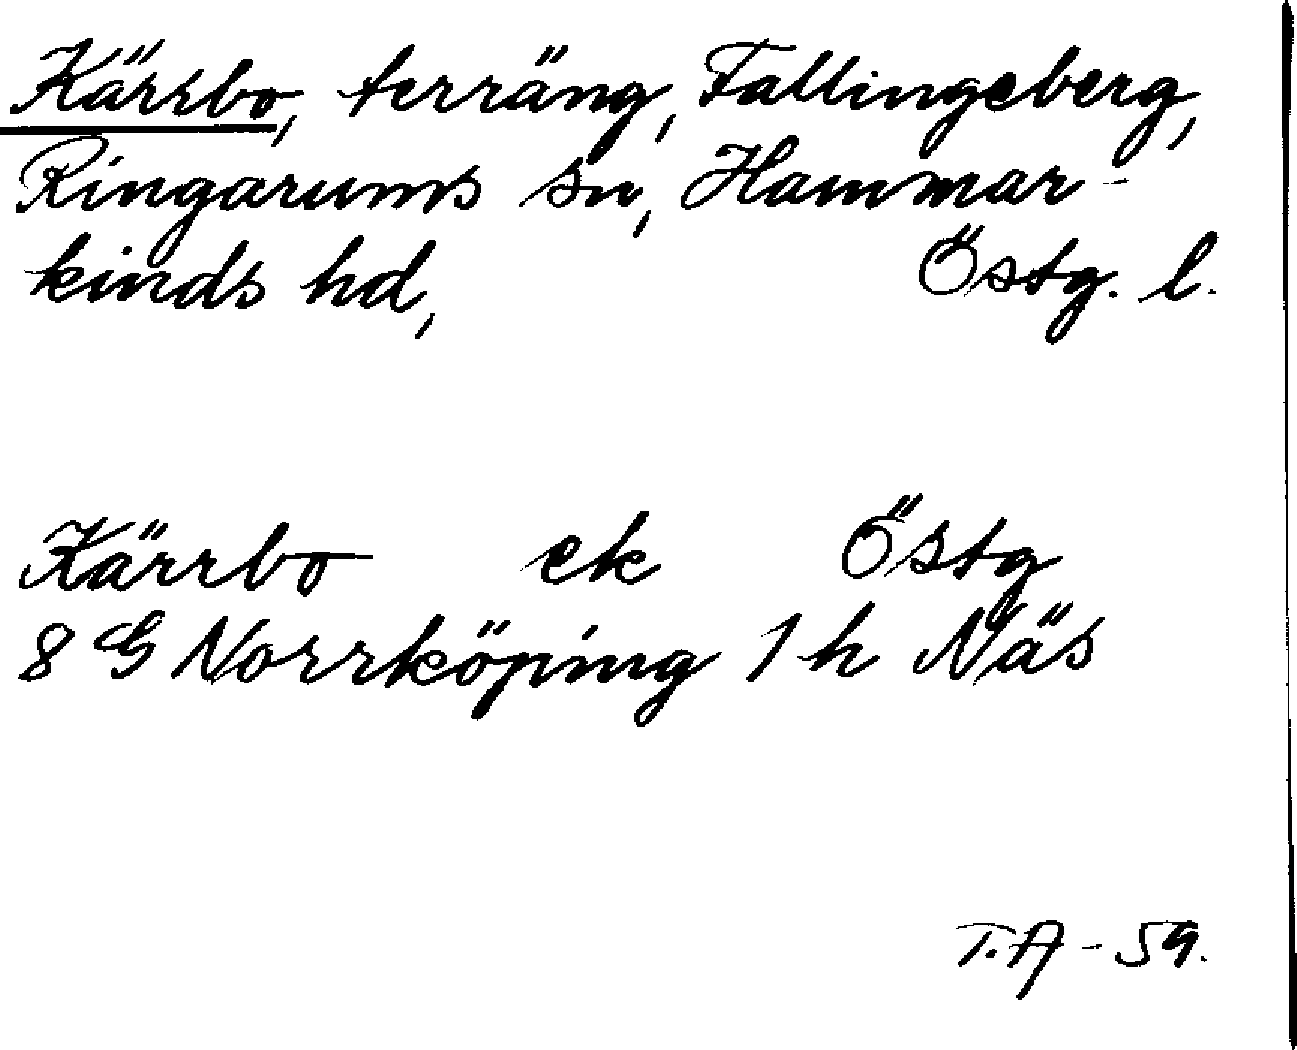 Kärrbo, terräng, Fallingeberg,
Ringarums sn, Hammar-
kinds hd, Östg. l.
Kärrbo ek Östg
8 G Norrköping 1 h Näs
T.A - 59.